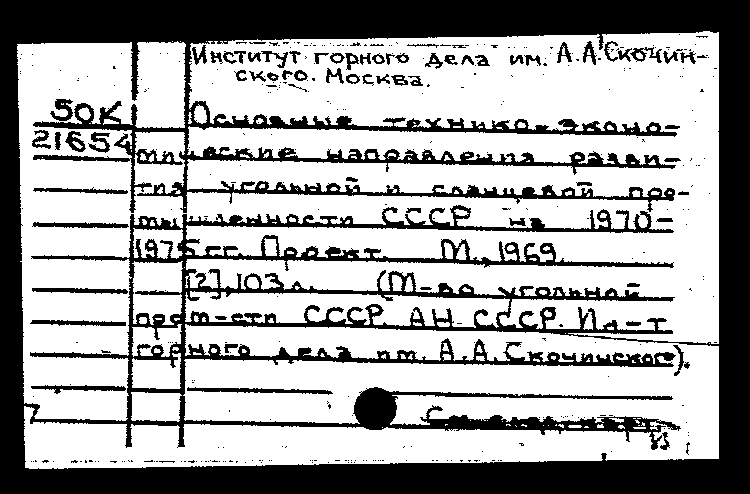 Институт горного дела им. А.А. Скочин-
ского. Москва.
50К
21654
Основные технико-эконо-
мические направления разви-
тия угольной и сланцевой про-
мышленности СССР на 1970-
1975 гг. Проект. М., 1969.
[2], 103 л. (М-во угольной
пром-сти СССР. АН СССР. Ин-т
горного дела им. А.А. Скочинского).
См. след. карт.